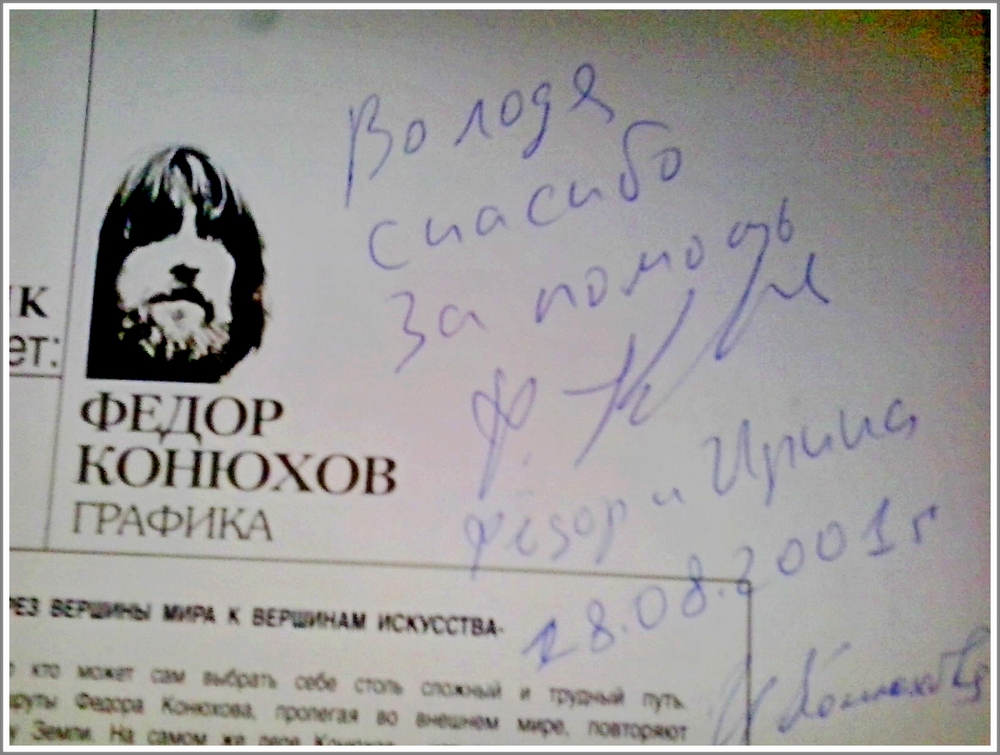 Володя
спасибо
за помощь
Ф. К
Фёдор и Ирина
28.08.2001 г
И Конюхова
ет:
ФЕДОР
КОНЮХОВ
ГРАФИКА
РЕЗ ВЕРШИНЫ МИРА К ВЕРШИНАМ ИСКУССТВА-
кто может сам выбрать себе столь сложный и трудный путь.
руты Федора Конюхова, пролегая во внешнем мире, повторяют
у Земли. На самом же деле Конюхов